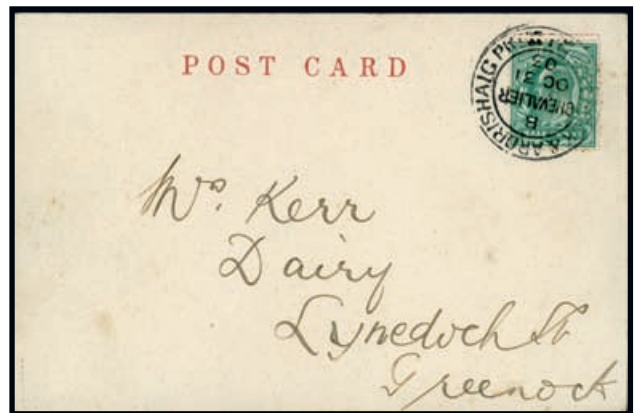 POST CARD
& ARDRISHAIG PK
B
CHEVALIER
OC 31
03
Mrs. Kerr
Dairy
Lynedoch St
Greenock